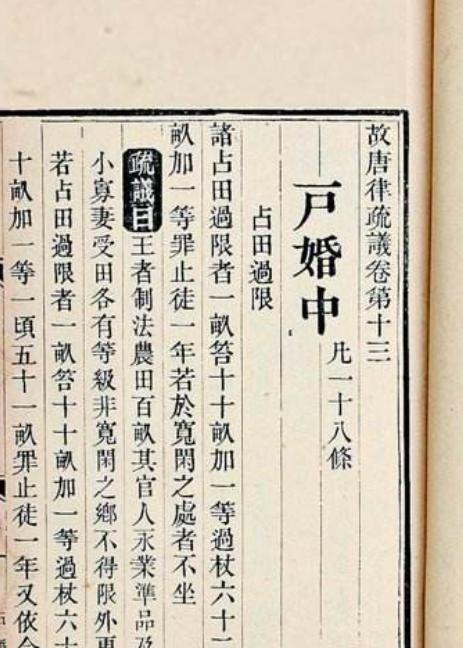 故唐律疏議卷第十三
戸婚中
凡一十八條
占田過限
諸占田過限者一畝笞十十畝加一等過杖六十二
畝加一等罪止徒一年若於寬閑之處者不坐
疏議曰王者制法農田百畝其官人永業準品及
小寡妻受田各有等級非寬閑之鄉不得限外更
若占田過限者一畝笞十十畝加一等過杖六十
十畝加一等一頃五十一畝罪止徒一年又依令